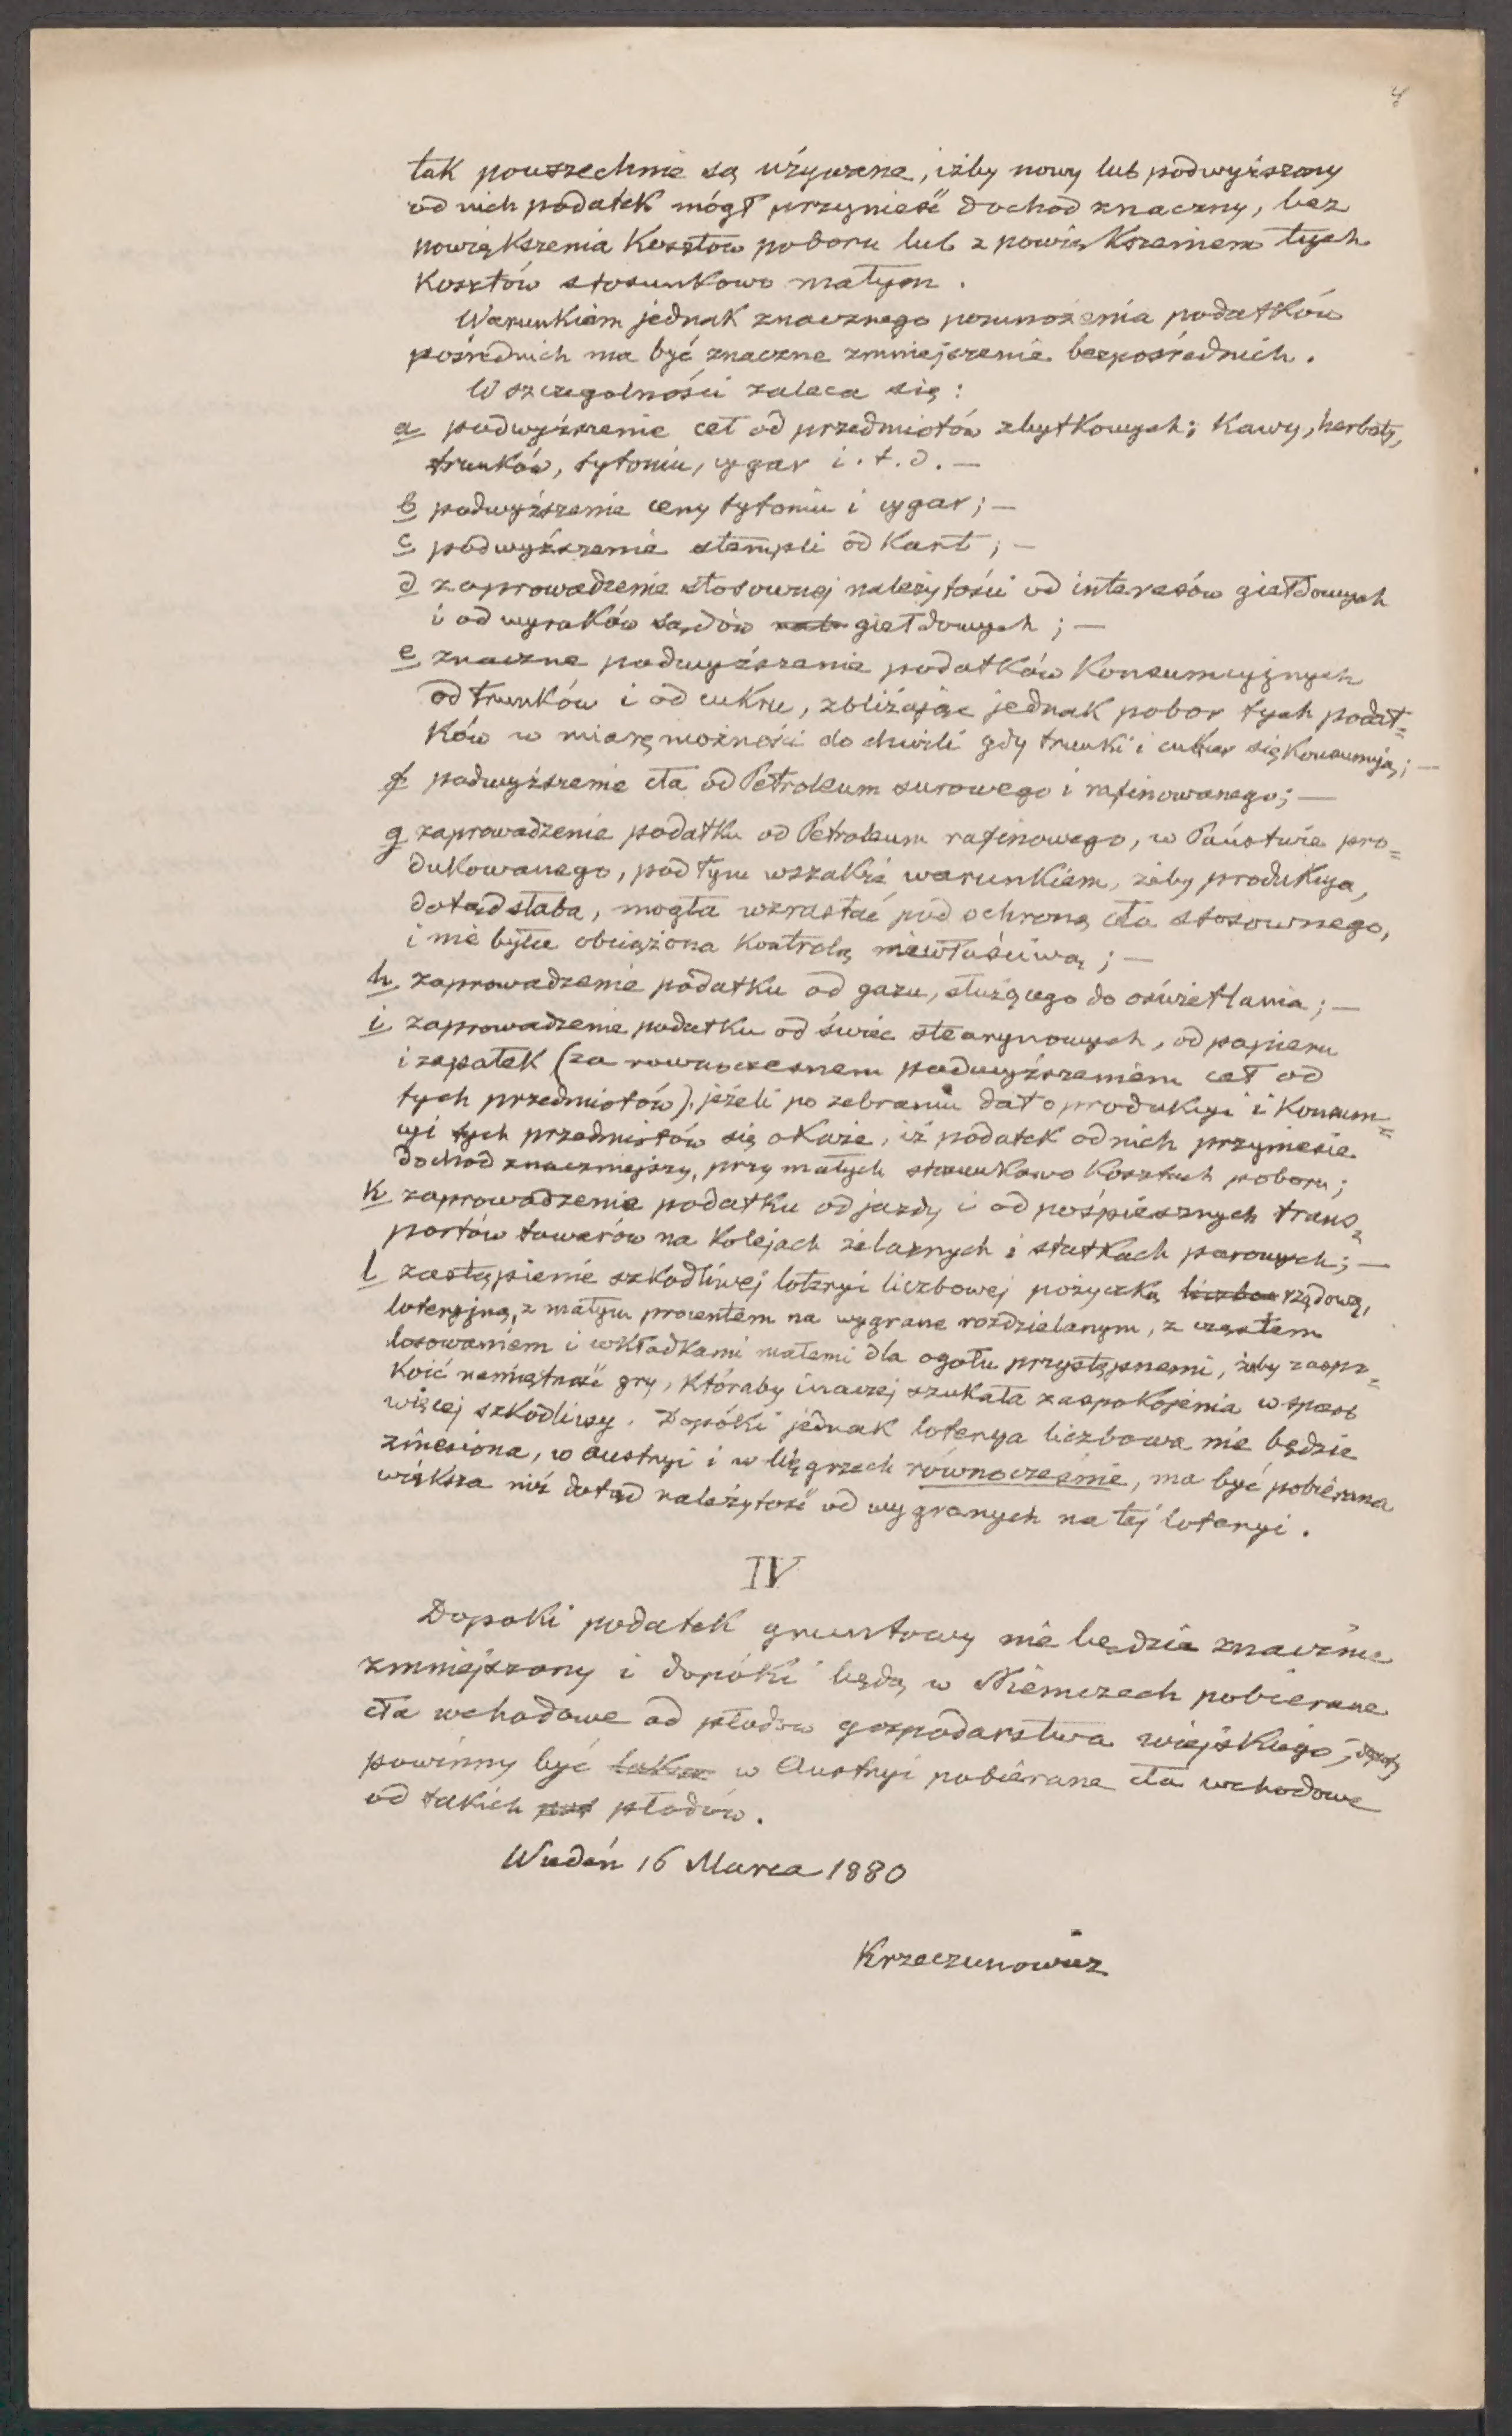 4
tak powszechnie są używane, iżby nowy lub podwyższony
od nich podatek mógł przynieść dochod znaczny, bez
powiększenia Kosztow poboru lub z powiększeniem tych
Kosztów stosunkowo małym.
Warunkiem jednak znacznego pomnożenia podatków
pośrednich ma być znaczne zmniejszenie bezpośrednich.
W szczegolności zaleca się:
a podwyższenie ceł od przedmiotów zbytkowych; Kawy, herbaty,
trunków, tytoniu, cygar i.t.d. —
b podwyższenie ceny tytoniu i cygar; —
c podwyższenie stempli od Kart; —
d zaprowadzenie stosownej należytości od interesów giełdowych
i od wyroków sądów giełdowych; —
e znaczne podwyższenie podatków Konsumcyjnych
od trunków i od cukru, zbliżając jednak pobor tych podat=
ków w miarę możności do chwili gdy trunki i cukier się Konsumują; —
f podwyższenie cła od Petroleum surowego i rafinowanego; —
g zaprowadzenie podatku od Petroleum rafinowego, w Państwie pro=
dukowanego, pod tym wszakże warunkiem, żeby produkcya,
dotąd słaba, mogła wzrastać pod ochroną cła stosownego,
i nie była obciążona Kontrolą niewłaściwą; —
h zaprowadzenie podatku od gazu, służącego do oświetlania; —
i zaprowadzenie podatku od świec stearynowych, od papieru
i zapałek (za rownoczesnem podwyższeniem ceł od
tych przedmiotów). jeżeli po zebraniu dat o produkcyi i Konsum=
cyi tych przedmiotów się oKaże, iż podatek od nich przyniesie
dochod znaczniejszy, przy małych stosunkowo Kosztach poboru;
k zaprowadzenie podatku od jazdy i od pośpiesznych trans=
portów towarów na Kolejach żelaznych i statkach parowych; —
l zastąpienie szkodliwej loteryi liczbowej pożyczką rządową,
loteryjną, z małym procentem na wygrane rozdzielanym, z częstem
losowaniem i wkładkami małemi dla ogołu przystępnemi, żeby zaspo=
Koić namiętność gry, któraby inaczej szukała zaspokojenia w sposob
więcej szkodliwy. Dopóki jednak loterya liczbowa nie będzie
zniesiona, w Austryi i w Węgrzech równocześnie, ma być pobierana
większa niż dotąd należytość od wygranych na tej loteryi.
IV
Dopoki podatek gruntowy nie będzie znacznie
zmniejszony i dopóki będą w Niemczech pobierane
cła wchodowe od płodow gospodarstwa wiejskiego,
powinny być w Austryi pobierane cła wchodowe
od takich płodów.
Wiedeń 16 Marca 1880
Krzeczunowicz